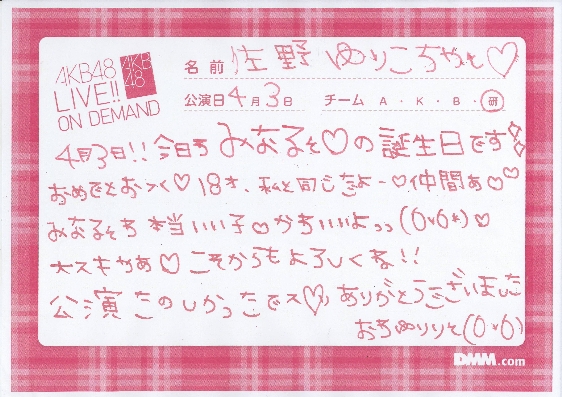 AKB48
LIVE!!
ON DEMAND
AKB
48
名前 佐野 ゆりこちゃん♡
公演日 4月3日 チーム A・K・B・研
4月3日!! 今日わ みおるん♡の誕生日です
おめでとおつく♡ 18才、私と同じだよー♡仲間あ♡♡
みおるんわ 本当いい子♡かわいいよっっ(0v0*)♡
大スキやあ♡ これからもよろしくね!!
公演 たのしかったでス♡ ありがとうございました
おわゆりりん(0v0)
DMM.com